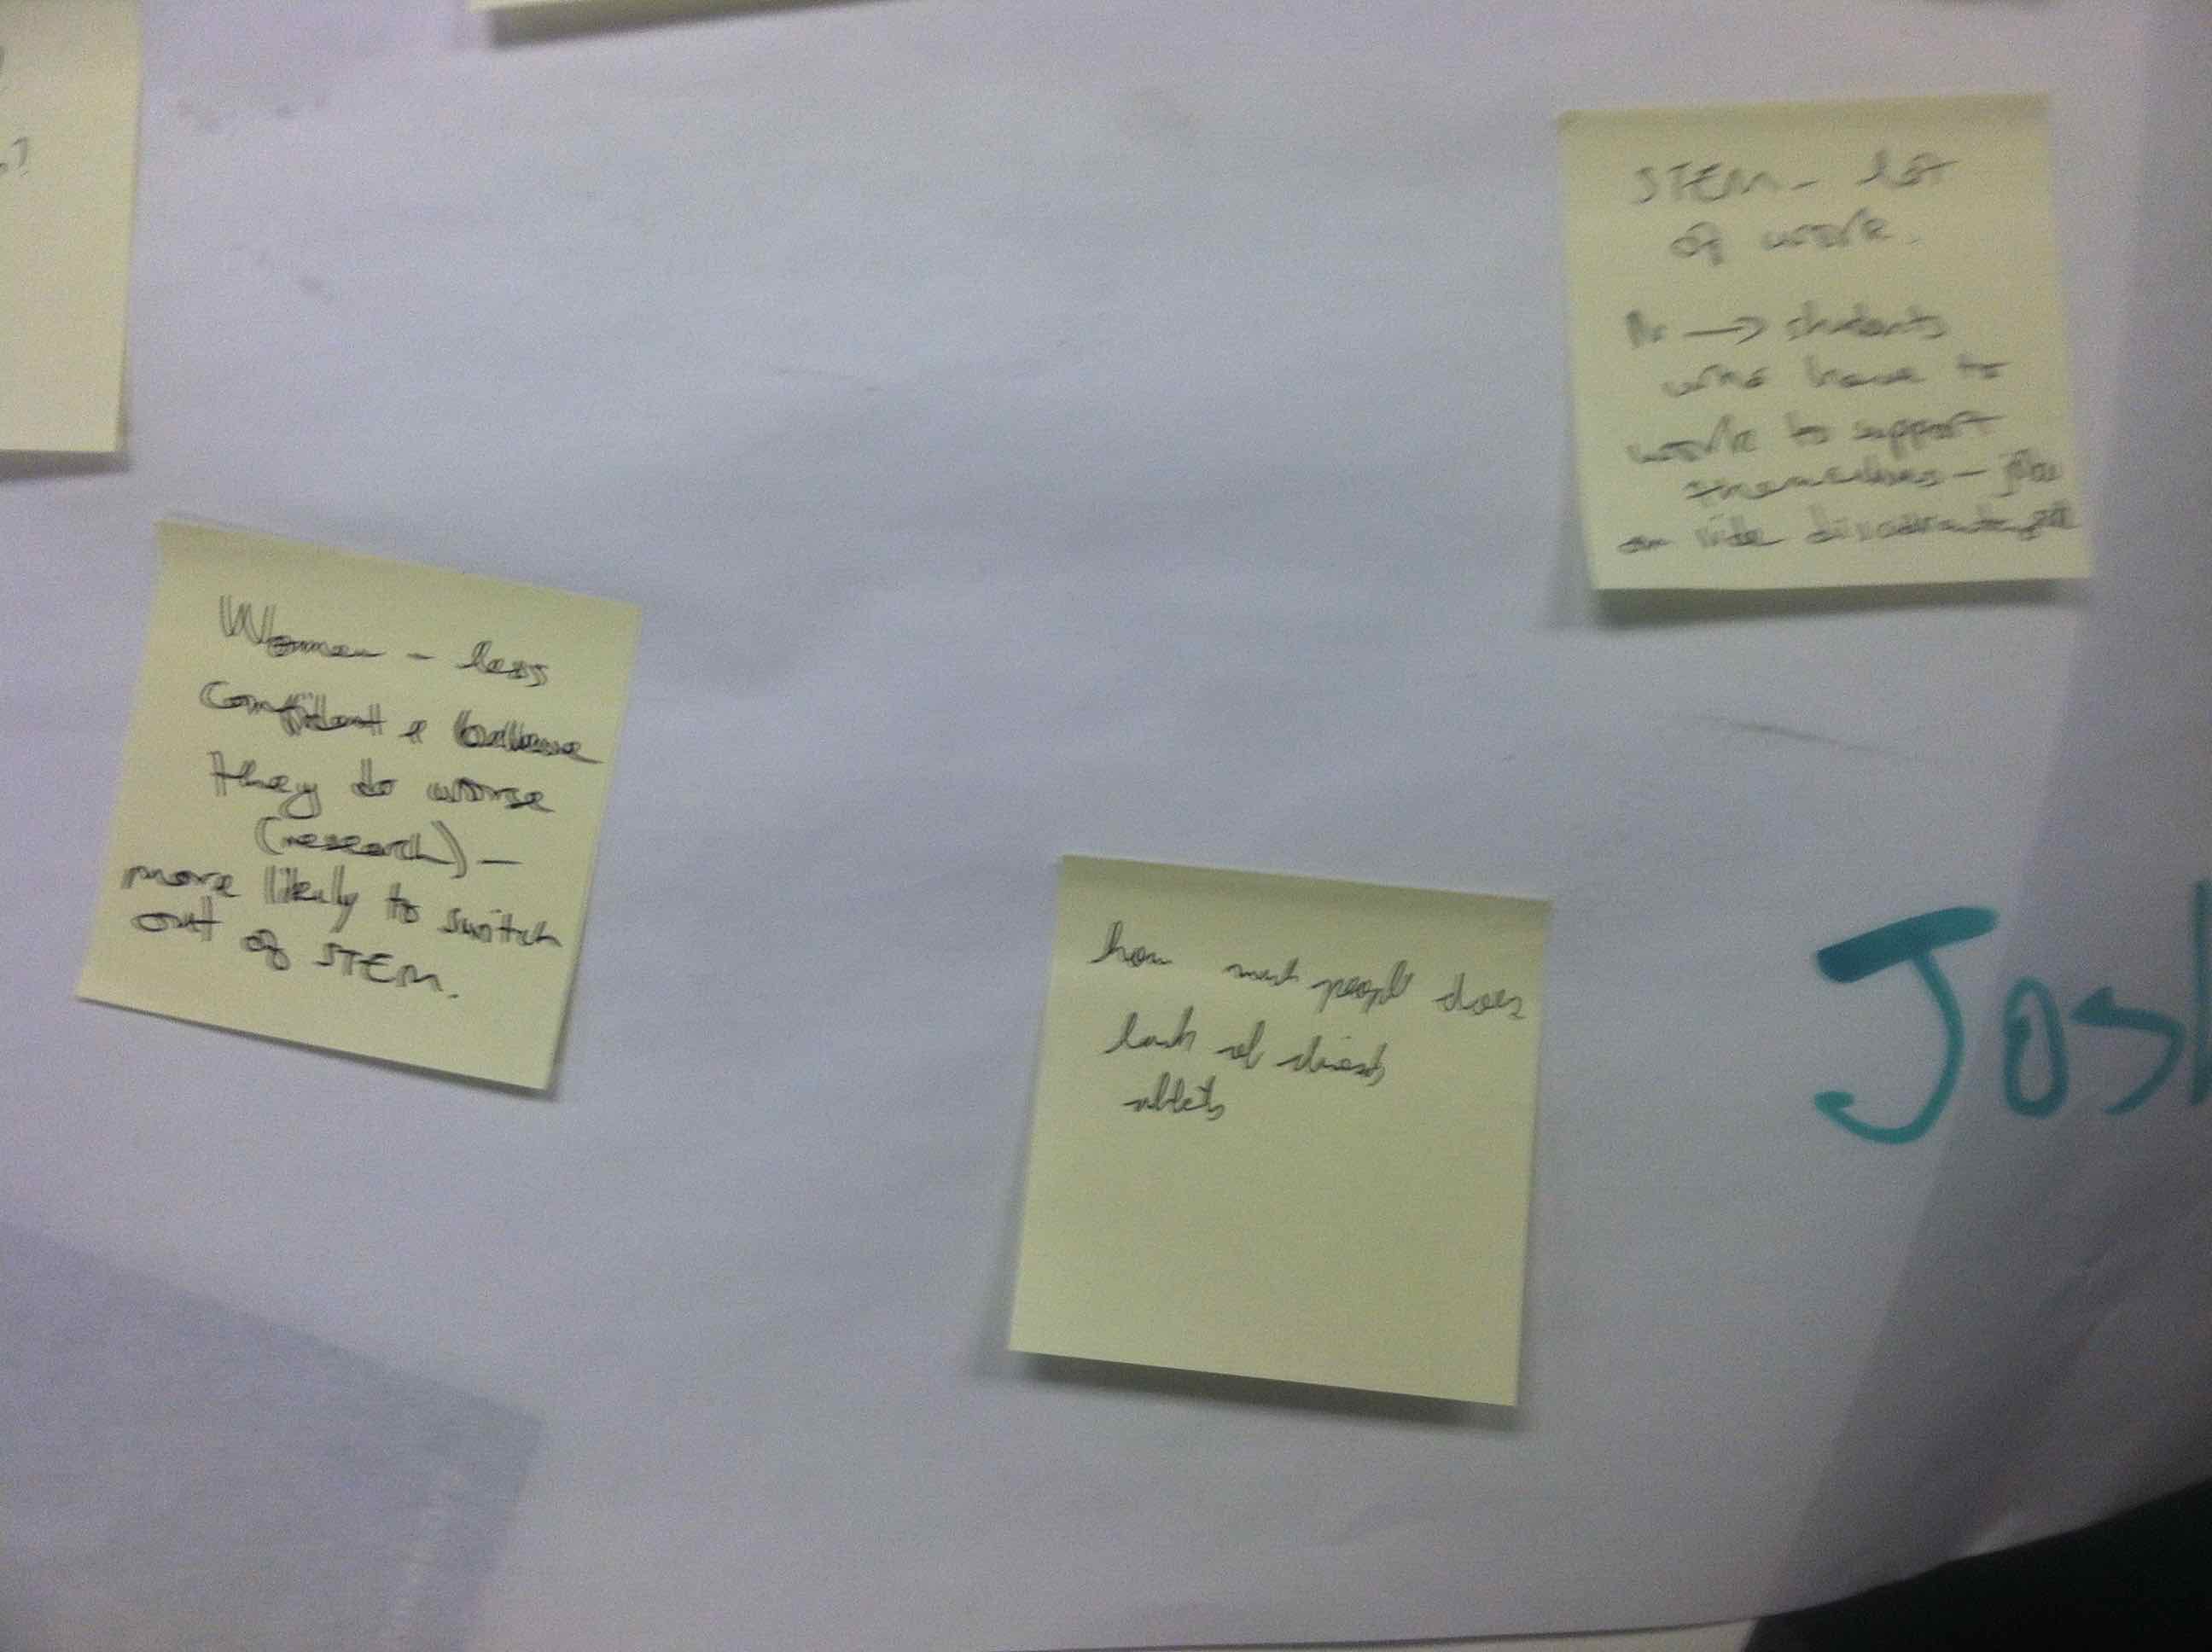 STEM - lot
of work.
→ students
who have to
work to support
themselves - jobs
disadvantage
Women - less
confident & believe
they do worse
(research) -
more likely to switch
out of STEM.
how much people does
lack of
Josh